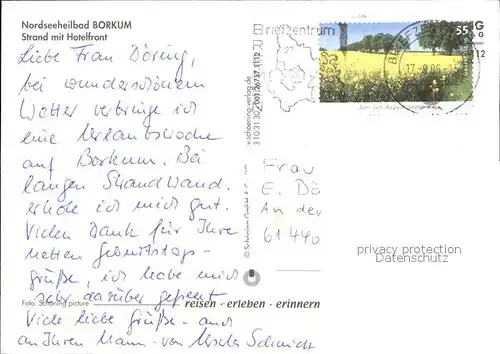 Nordseeheilbad BORKUM
Strand mit Hotelfront
Liebe Frau Döring,
bei wunderschönem
Wetter verbringe ich
eine Urlaubswoche
auf Borkum. Bei
langen Strandwand.
erhole ich mich gut.
Vielen Dank für Ihre
netten Geburtstags-
grüße, ich habe mich
sehr darüber gefreut
Viele liebe Grüße - auch
an Ihren Mann - von Schmidt
Foto: Schöning picture
reisen · erleben · erinnern
Briefzentrum
27
55
17. 9. 06
12
Juni-Juli-August-September
Frau
E. Dö
An der
61440
privacy protection
Datenschutz
© Schöning GmbH & Co. KG